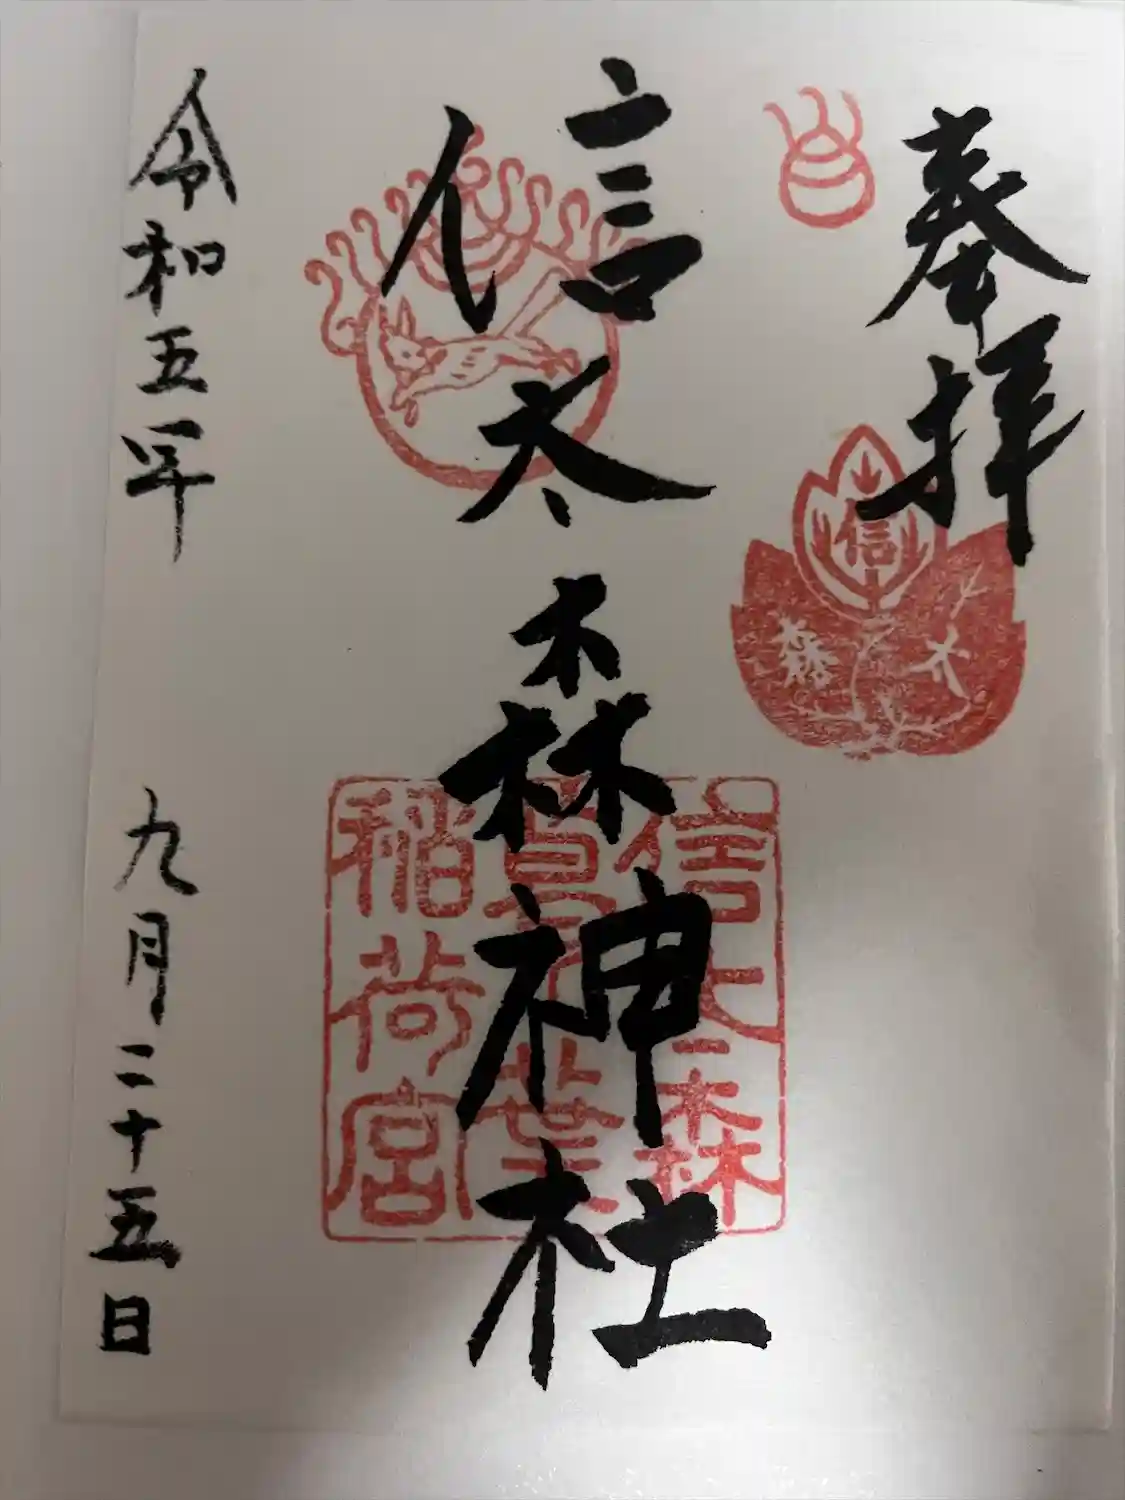 奉拝
信太
森
信太森神社
信太森
葛葉
稲荷宮
令和五年
九月二十五日